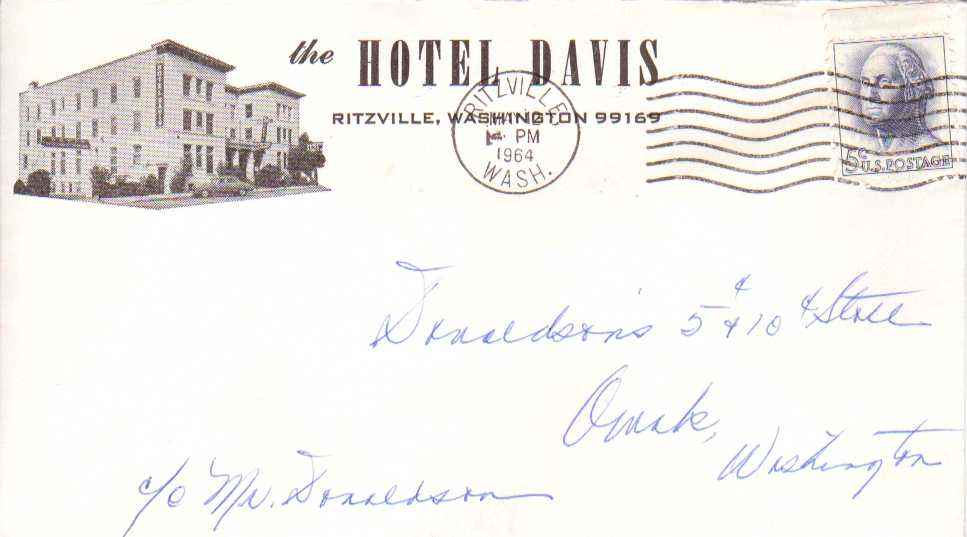 the HOTEL DAVIS
RITZVILLE, WASHINGTON 99169
RITZVILLE
PM
1964
WASH.
5¢ U.S. POSTAGE
Donaldson's 5¢ & 10¢ Store
Omak,
Washington
c/o Mr. Donaldson